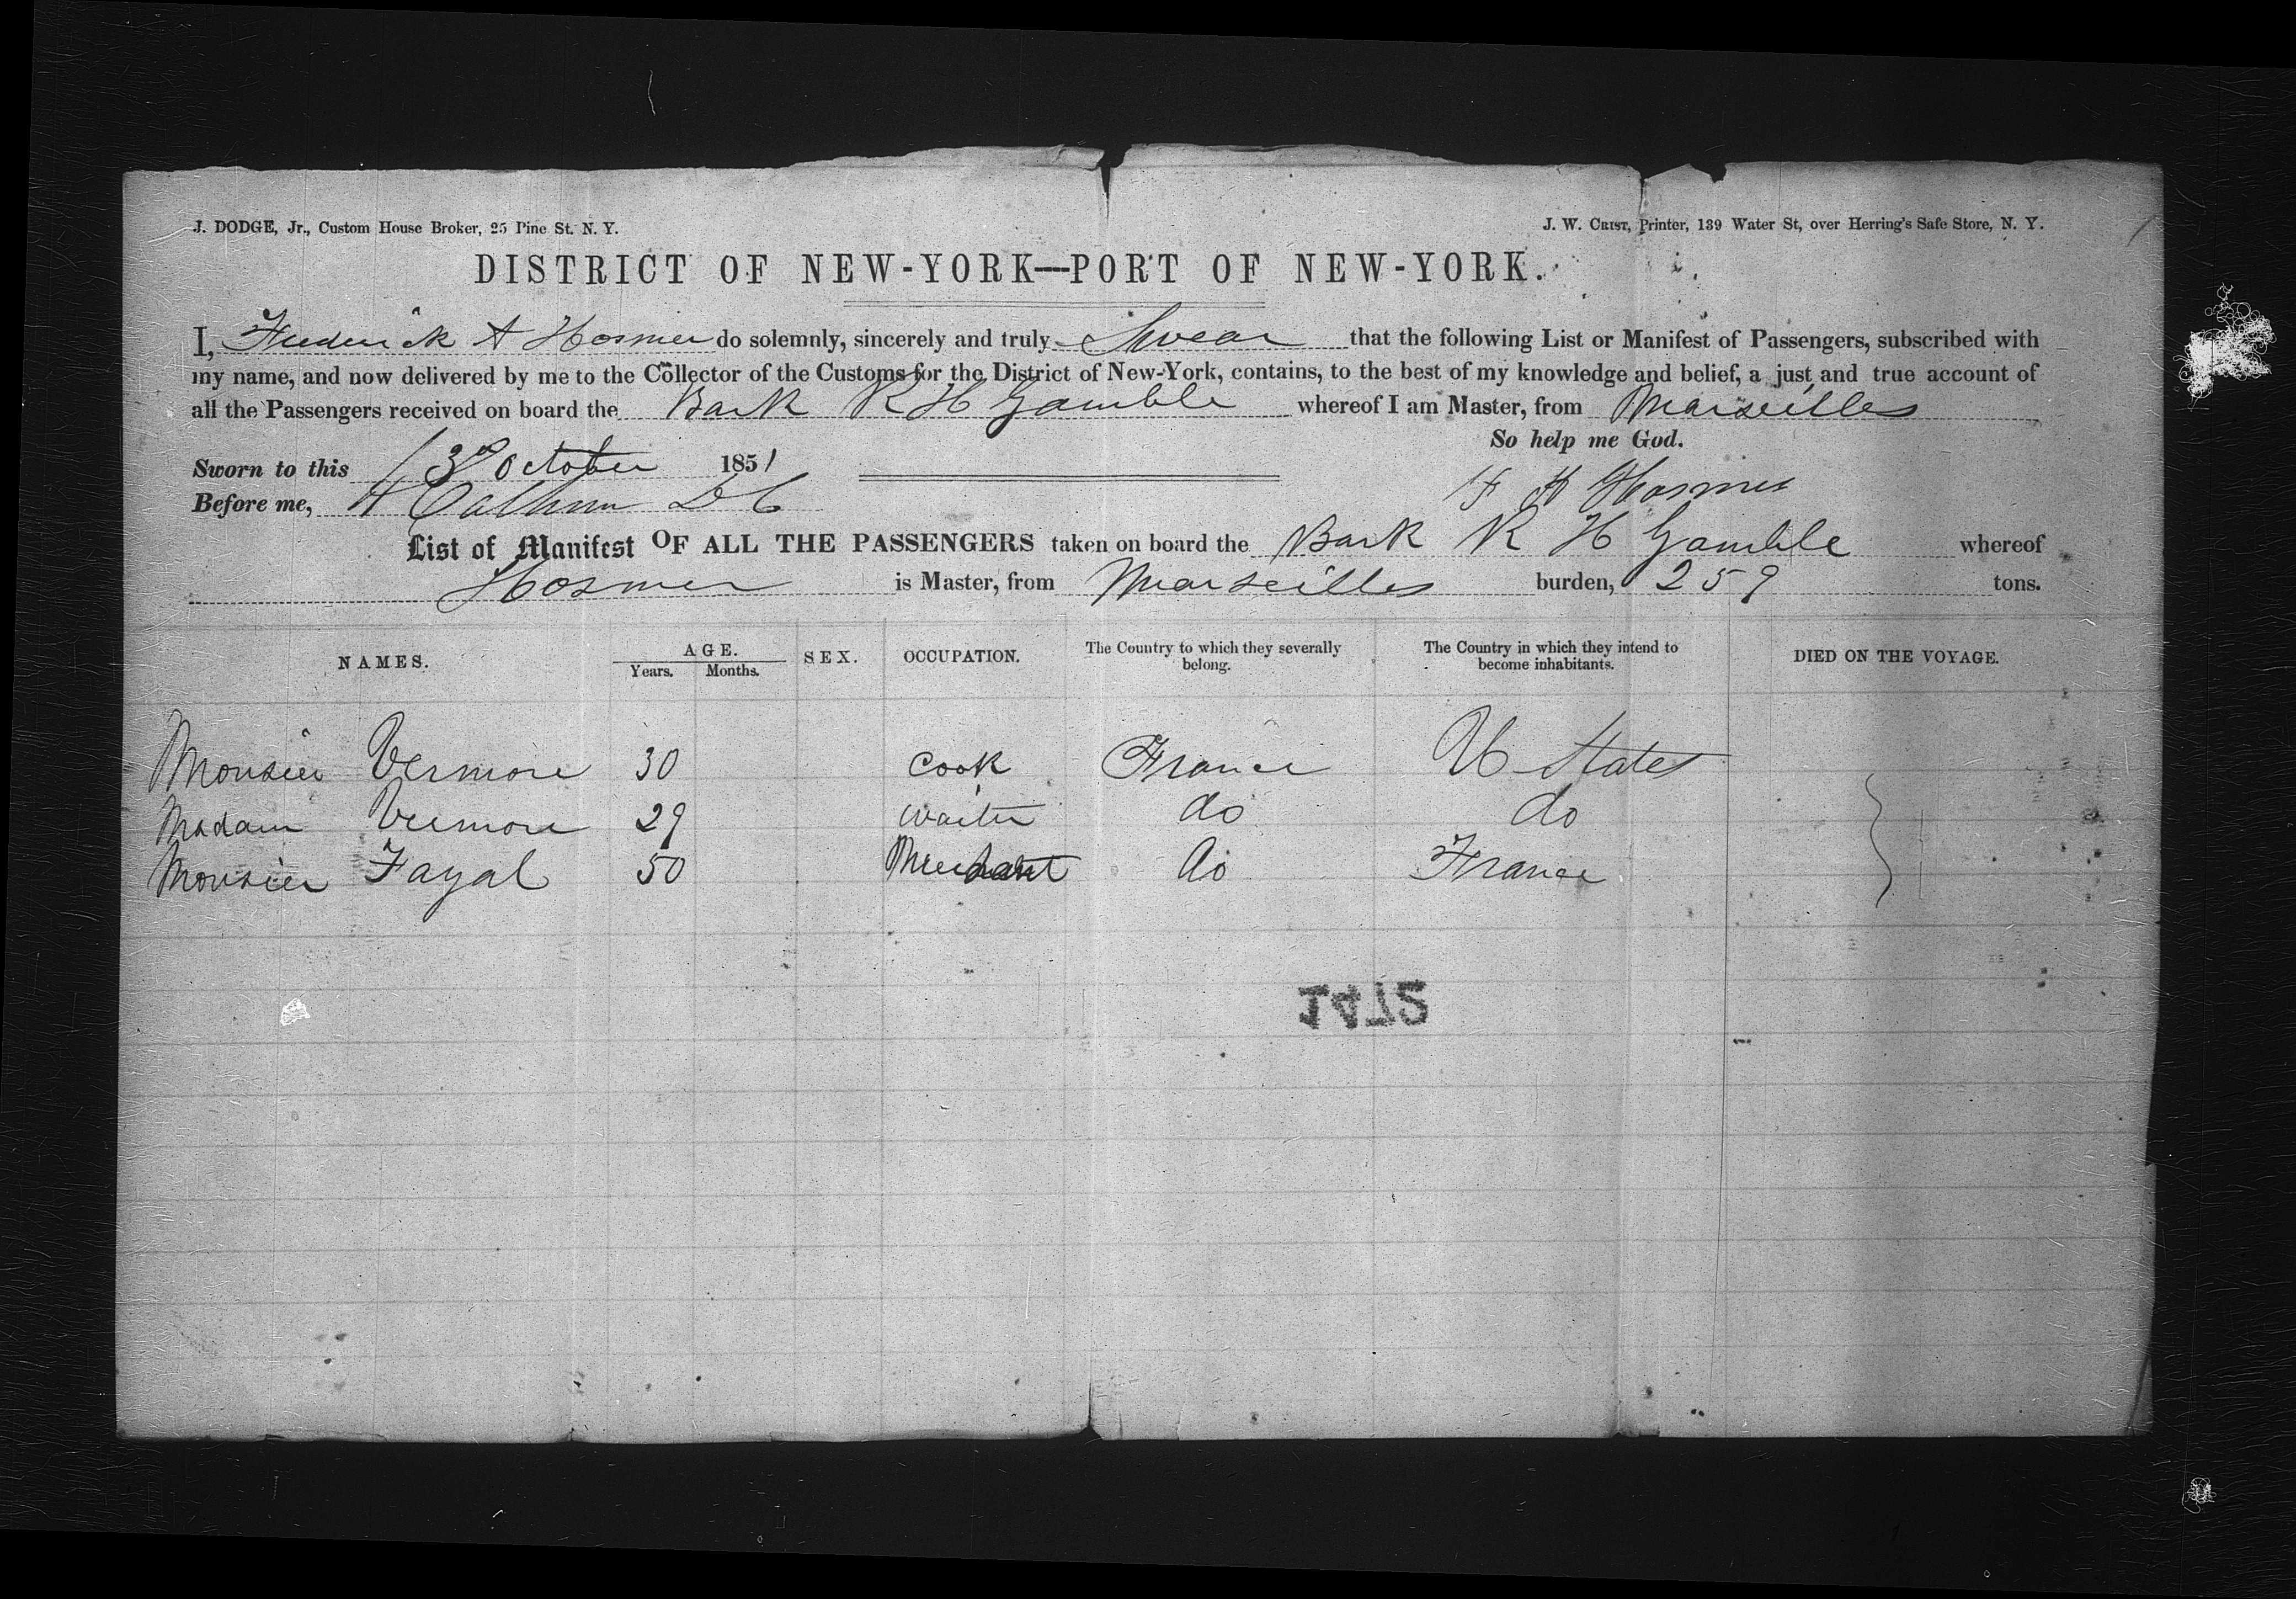 J. DODGE, Jr., Custom House Broker, 25 Pine St. N. Y.
J. W. CRIST, Printer, 139 Water St, over Herring's Safe Store, N. Y.
DISTRICT OF NEW-YORK—PORT OF NEW-YORK.
I, Frederick A Hosmer do solemnly, sincerely and truly Swear that the following List or Manifest of Passengers, subscribed with
my name, and now delivered by me to the Collector of the Customs for the District of New-York, contains, to the best of my knowledge and belief, a just and true account of
all the Passengers received on board the Bark R H Gamble whereof I am Master, from Marseilles
So help me God.
Sworn to this 3d October 1851
F A Hosmer
Before me, Calhoun D C
List of Manifest OF ALL THE PASSENGERS taken on board the Bark R H Gamble whereof
Hosmer is Master, from Marseilles burden, 259 tons.
NAMES. AGE. Years. Months. SEX. OCCUPATION. The Country to which they severally belong. The Country in which they intend to become inhabitants. DIED ON THE VOYAGE.
Monsieur Vermore 30 Cook France U States
Madam Vermore 29 waiter do do
Monsieur Fayal 50 Merchant do France
1472